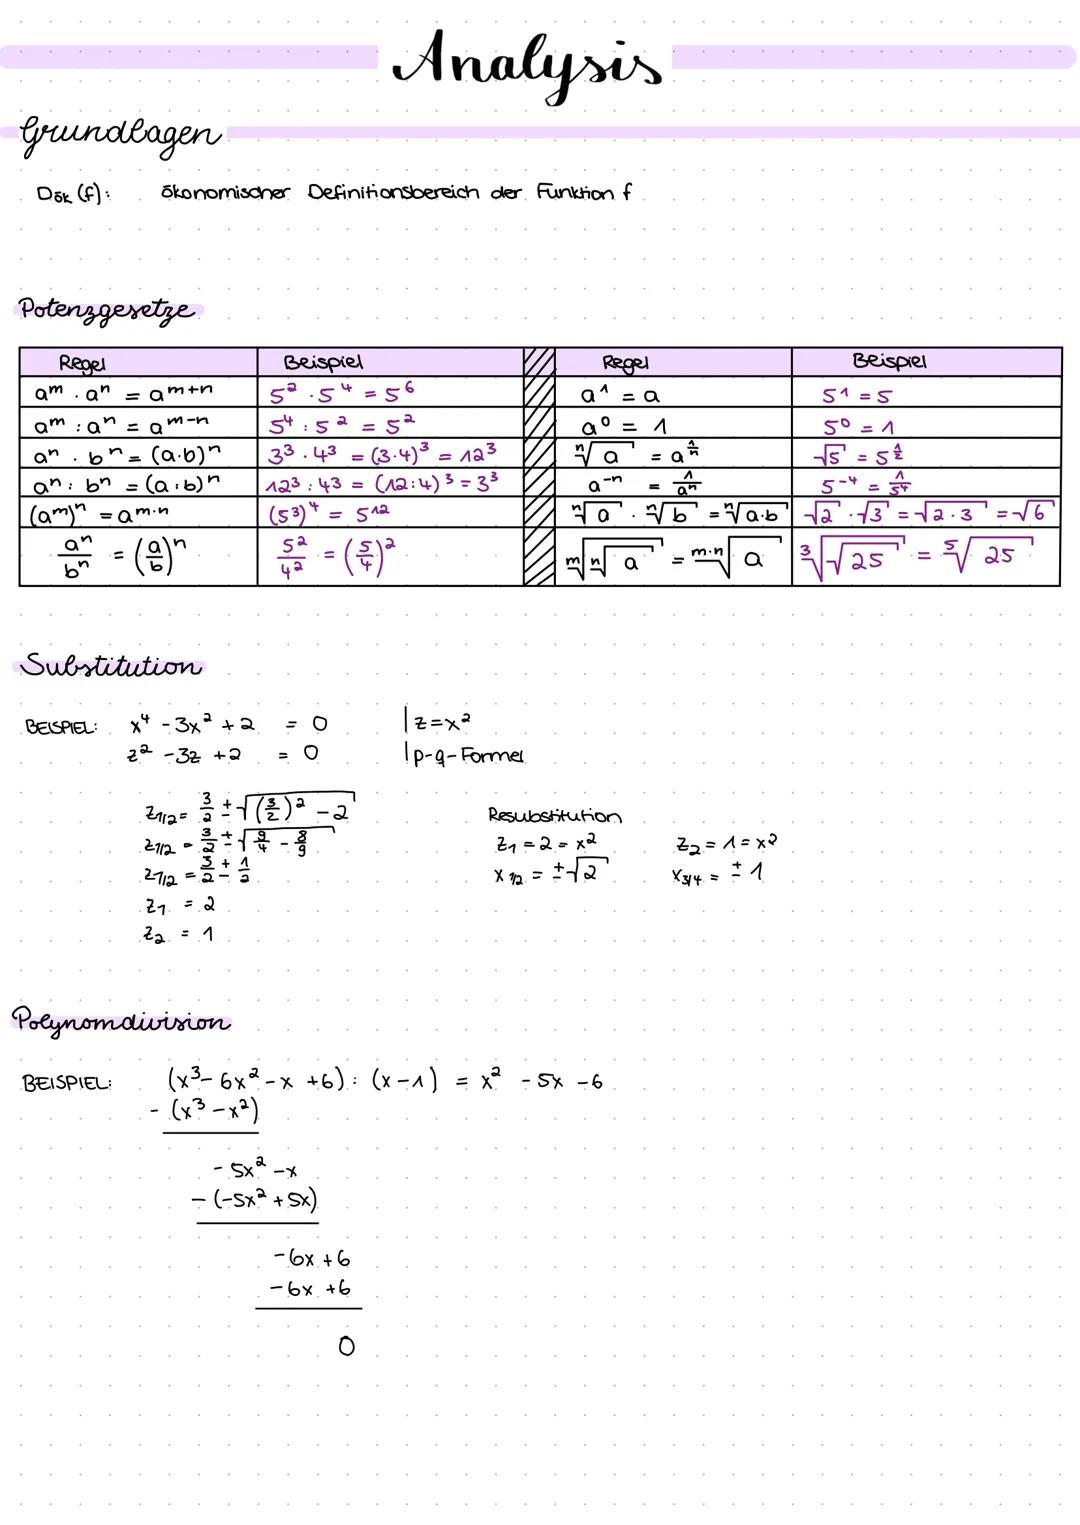 Analysis
Grundlagen
Dök (f): ökonomischer Definitionsbereich der Funktion f
Potenzgesetze
Regel | Beispiel | Regel | Beispiel
aᵐ · aⁿ = aᵐ⁺ⁿ | 5² · 5⁴ = 5⁶ | a¹ = a | 5¹ = 5
aᵐ : aⁿ = aᵐ⁻ⁿ | 5⁴ : 5² = 5² | a⁰ = 1 | 5⁰ = 1
aⁿ · bⁿ = (a·b)ⁿ | 3³ · 4³ = (3·4)³ = 12³ | ⁿ√a = a^(1/n) | √5 = 5^(1/2)
aⁿ : bⁿ = (a:b)ⁿ | 12³ : 43 = (12:4)³ = 3³ | a⁻ⁿ = 1/aⁿ | 5⁻⁴ = 1/5⁴
(aᵐ)ⁿ = aᵐ·ⁿ | (5³)⁴ = 5¹² | ⁿ√a · ⁿ√b = ⁿ√a·b | √2 · √3 = √2·3 = √6
aⁿ/bⁿ = (a/b)ⁿ | 5²/4² = (5/4)² | ᵐ√ⁿ√a = ᵐ·ⁿ√a | ³√√25 = ⁵√25
Substitution
BEISPIEL: x⁴ - 3x² + 2 = 0 | z = x²
z² - 3z + 2 = 0 | p-q-Formel
z1/2 = 3/2 ± √(3/2)² - 2
z1/2 = 3/2 ± √9/4 - 8/9
z1/2 = 3/2 ± 1/2
z₁ = 2
z₂ = 1
Resubstitution
z₁ = 2 = x²
x1/2 = ±√2
z₂ = 1 = x²
x3/4 = ± 1
Polynomdivision
BEISPIEL: (x³ - 6x² - x + 6) : (x - 1) = x² - 5x - 6
- (x³ - x²)
- 5x² - x
- (-5x² + 5x)
-6x + 6
-6x + 6
0